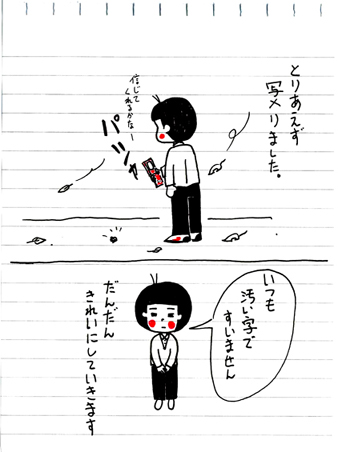 とりあえず
写メりました。
信じて
くれるかなー
パシャ
いつも
汚い字で
すいません
だんだん
きれいにしていきます